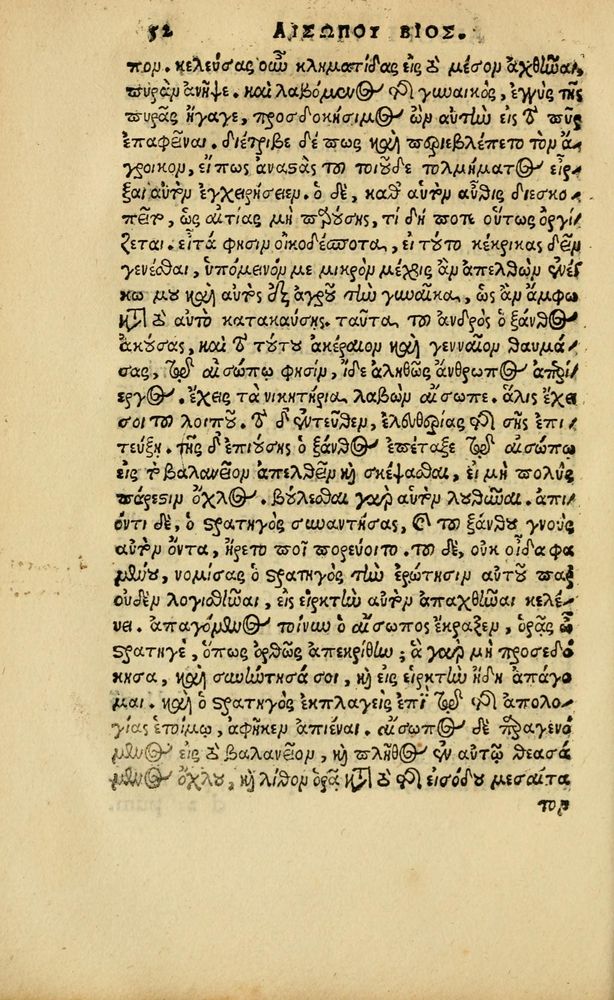 52 ΑΙΣΩΠΟΥ ΒΙΟΣ.
πον. κελεύσας οὖν κληματίδας εἰς τὸ μέσον ἀχθῆναι,
πυρὰν ἀνῆψε. καὶ λαβόμενος τῆς γυναικὸς, ἐγγὺς τῆς
πυρᾶς ἤγαγε, προσδοκήσιμος ὢν αὐτὴν εἰς τὸ πῦρ
ἐπαφεῖναι. διέτριβε δέ πως καὶ περιεβλέπετο τὸν ἀ-
γροικον, εἴ πως ἀναστὰς τοῦ τοιοῦδε τολμήματος εἶρ
ξαι αὐτὸν ἐγχειρήσειεν. ὁ δὲ, καθ' αὑτὸν αὖθις διεσκο-
πεῖτο, ὡς αἰτίας μὴ παρούσης, τί δή ποτε οὕτως ὀργί-
ζεται. εἶτά φησιν οἰκοδέσποτα, εἰ τοῦτο κέκρικας δεῖν
γενέσθαι, ὑπόμεινόν με μικρὸν μέχρις ἂν ἀπελθὼν ἐνέγ-
κω μου καὶ αὐτὸς ἐξ ἀγροῦ τὴν γυναῖκα, ὡς ἂν ἄμφω
κατὰ τὸ αὐτὸ κατακαύσῃς. ταῦτα τοῦ ἀνδρὸς ὁ ξάνθος
ἀκούσας, καὶ τὸ τούτου ἀκέραιον καὶ γενναῖον θαυμά-
σας, τῷ αἰσώπῳ φησὶν, ἴδε ἀληθῶς ἄνθρωπος ἀπερί-
εργος. ἔχεις τὰ νικητήρια λαβὼν αἴσωπε. ἅλις ἔχει
σοι τοῦ λοιποῦ. τὸ δ' ἐντεῦθεν, ἐλευθερίας τῆς σῆς ἐπι-
τεύξῃ. τῆς δ' ἐπιούσης ὁ ξάνθος ἐπέταξε τῷ αἰσώπῳ
εἰς τὸ βαλανεῖον ἀπελθεῖν καὶ σκέψασθαι, εἰ μὴ πολὺς
πάρεστιν ὄχλος. βούλεσθαι γὰρ αὐτὸν λουθῆναι. ἀπι-
όντι δὲ, ὁ στρατηγὸς συναντήσας, καὶ τοῦ ξάνθου γνοὺς
αὐτὸν ὄντα, ἤρετο ποῖ πορεύοιτο. τοῦ δὲ, οὐκ οἶδα φα-
μένου, νομίσας ὁ στρατηγὸς τὴν ἐρώτησιν αὐτοῦ παρ'
οὐδὲν λογισθῆναι, εἰς εἱρκτὴν αὐτὸν ἀπαχθῆναι κελέ-
υει. ἀπαγόμενος τοίνυν ὁ αἴσωπος ἔκραξεν, ὁρᾷς ὦ
στρατηγὲ, ὅπως ὀρθῶς ἀπεκρίθην; ἃ γὰρ μὴ προσεδό
κησα, καὶ συνώτησά σοι, καὶ εἰς εἱρκτὴν ἤδη ἀπάγο
μαι. καὶ ὁ στρατηγὸς ἐκπλαγεὶς ἐπὶ τῷ τῆς ἀπολο-
γίας ἑτοίμῳ, ἀφῆκεν ἀπιέναι. αἴσωπος δὲ παραγενό
μενος εἰς τὸ βαλανεῖον, καὶ πλῆθος ἐν αὐτῷ θεασά
μενος ὄχλου, καὶ λίθον ὁρᾷ κατὰ τὸ τῆς εἰσόδου μεσαίτα
τον